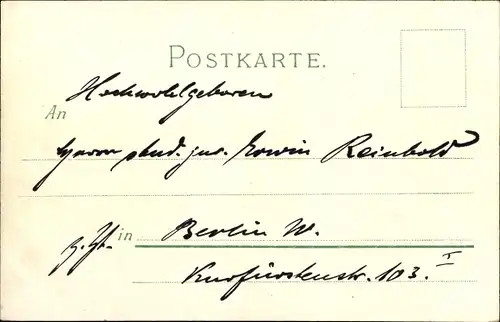 POSTKARTE.
Hochwohlgeboren
An
Herrn stud. jur. Erwin Reinbold
z. Zt. in Berlin W.
Kurfürstenstr. 103. I